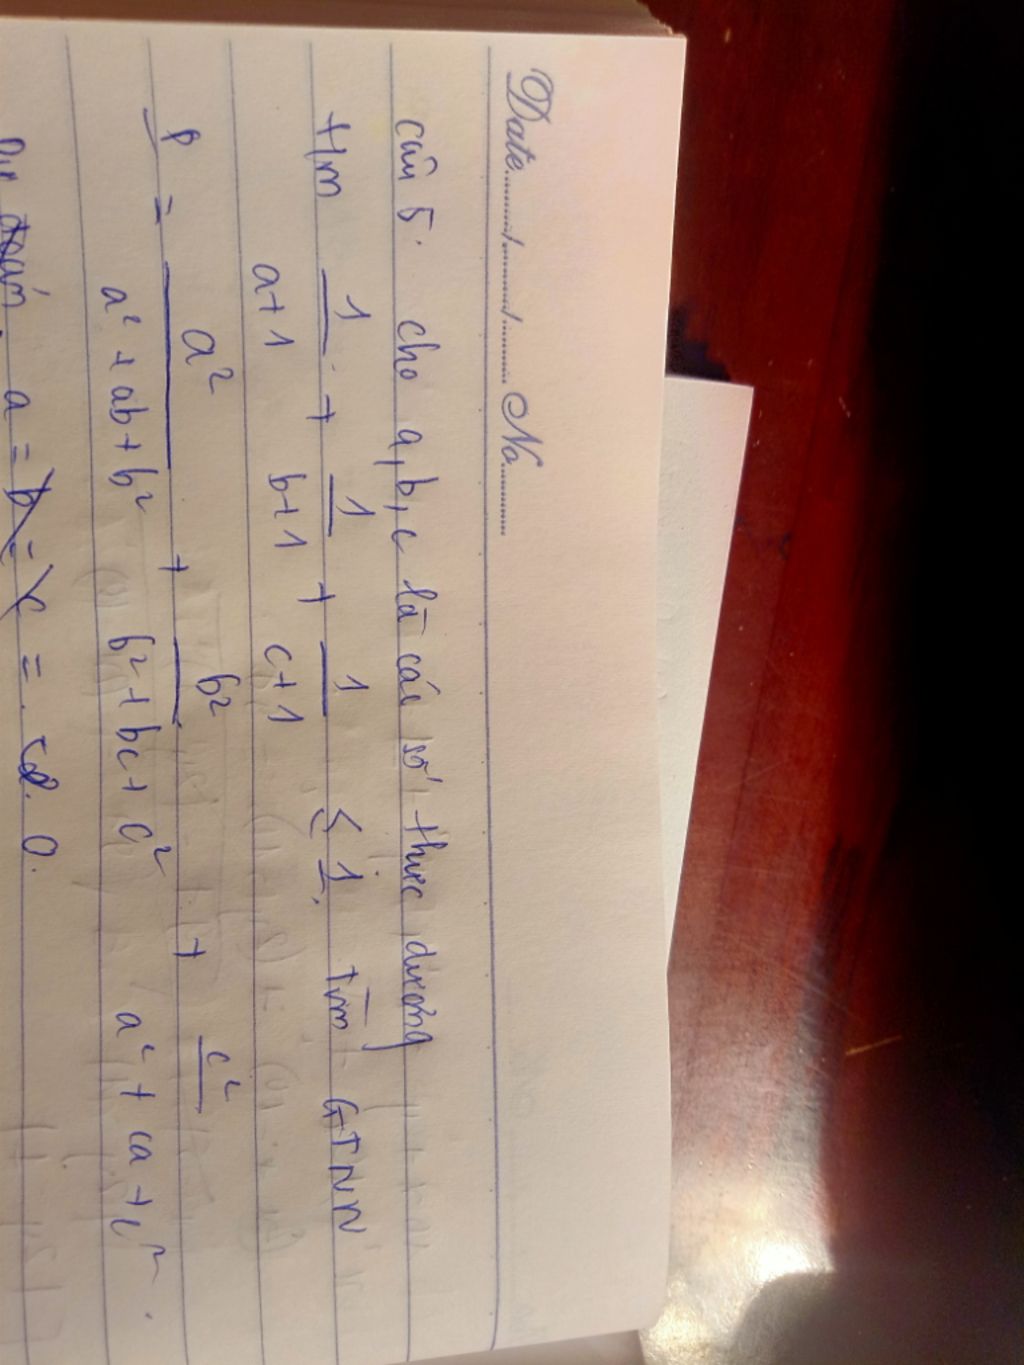 Date........./........./......... No.........
câu 5. cho a, b, c là các số thực dương
t/m 1/(a+1) + 1/(b+1) + 1/(c+1) ≤ 1. Tìm GTNN
P = a²/(a² + ab + b²) + b²/(b² + bc + c²) + c²/(a² + ca + c²).
đoán. a = b = c = 0.